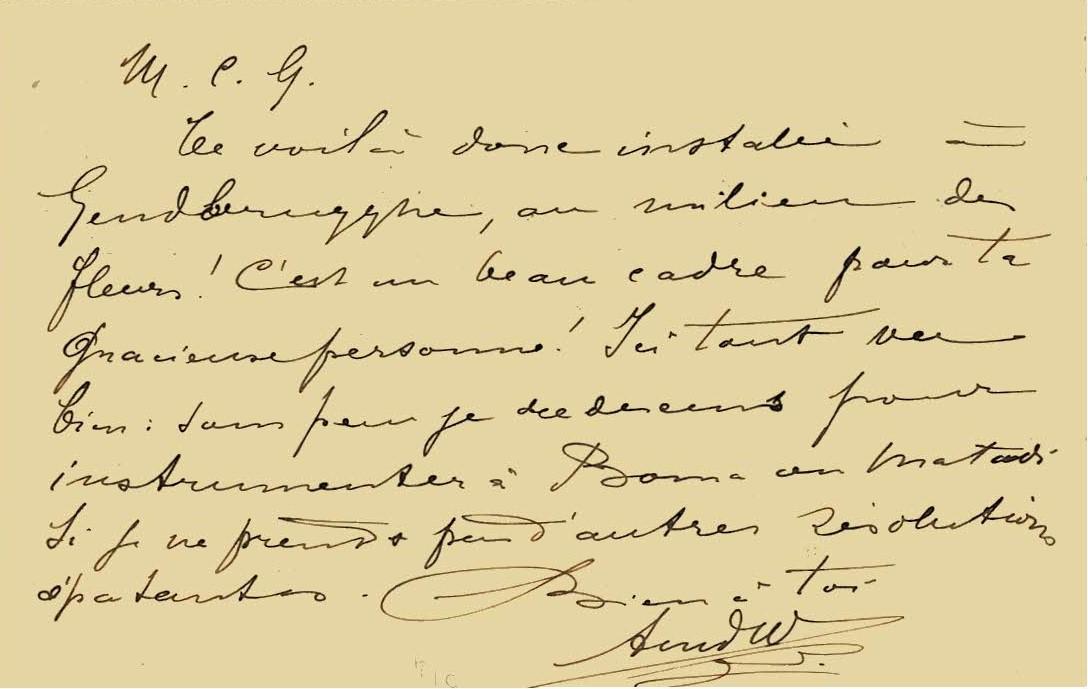 M. C. G.
Te voilà donc installé à
Gendbrugghe, au milieu des
fleurs! C'est un beau cadre pour ta
Gracieuse personne! Ici tout va
bien: sous peu je descens pour
instrumenter à Boma ou Matadi
Si je ne prends pas d'autres résolutions
épatantes. Bien à toi